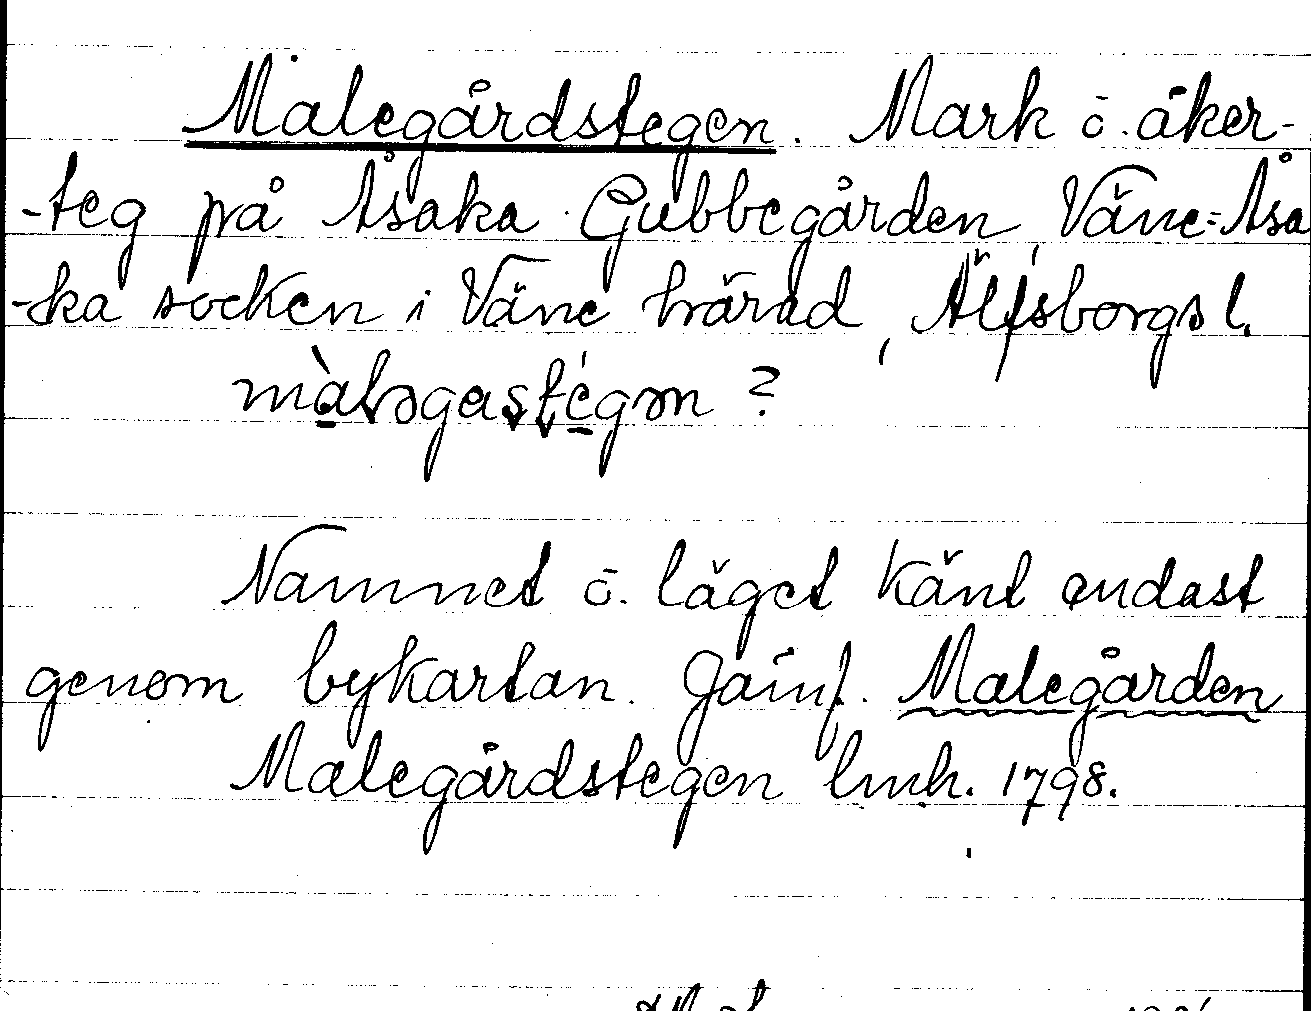 Malegårdstegen. Mark ō. åker-
-teg på Åsaka Gubbegården, Väne=Åsa
-ka socken i Väne härad, Älfsborgs l.
màləgastégən ?
Namnet ō. läget känt endast
genom bykartan. Jämf. Malegården
Malegårdstegen lmh. 1798.